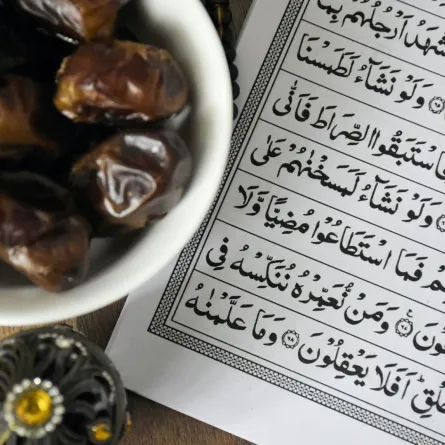 شْهَدُ اَرْجُلُهُمْ بِمَا
وَلَوْ نَشَآءُ لَطَمَسْنَا
فَاسْتَبَقُوا الصِّرَاطَ فَاَنّٰى
وَلَوْ نَشَآءُ لَمَسَخْنٰهُمْ عَلٰى
هِمْ فَمَا اسْتَطَاعُوْا مُضِيًّا وَّلَا
وْنَ ۝٦٧ وَمَنْ نُّعَمِّرْهُ نُنَكِّسْهُ فِى
خَلْقِ اَفَلَا يَعْقِلُوْنَ ۝٦٨ وَمَا عَلَّمْنٰهُ